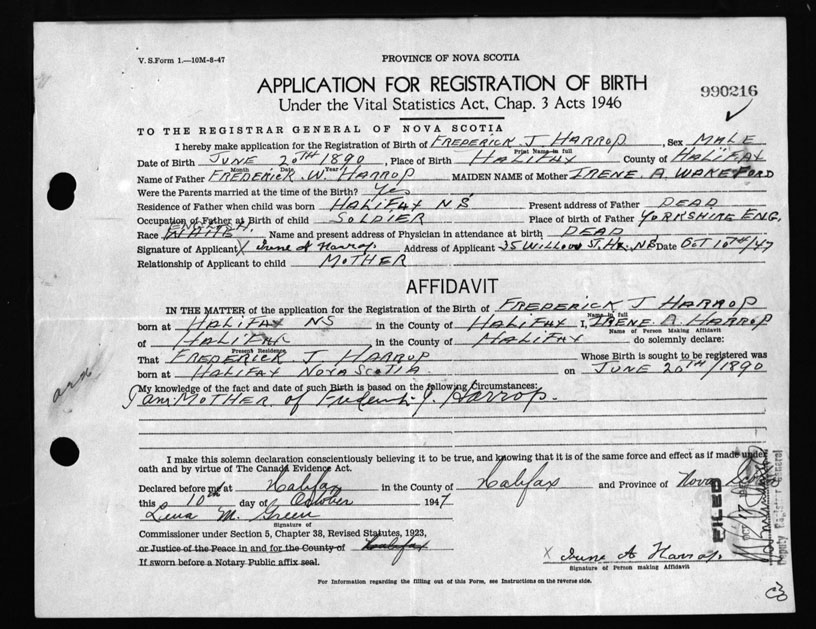 V. S. Form 1.—10M-8-47
PROVINCE OF NOVA SCOTIA
APPLICATION FOR REGISTRATION OF BIRTH
990216
Under the Vital Statistics Act, Chap. 3 Acts 1946
TO THE REGISTRAR GENERAL OF NOVA SCOTIA
I hereby make application for the Registration of Birth of FREDERICK. J HARROP, Sex MALE
Print Name in full
Date of Birth JUNE 20TH 1890, Place of Birth HALIFAX County of HALIFAX
Month Date Year
Name of Father FREDERICK. W. HARROP MAIDEN NAME of Mother IRENE. A. WAKEFORD
Were the Parents married at the time of the Birth? Yes
Residence of Father when child was born HALIFAX NS Present address of Father DEAD
Occupation of Father at Birth of child SOLDIER Place of birth of Father YORKSHIRE ENG,
ENGLISH.
Race WHITE Name and present address of Physician in attendance at birth DEAD
Signature of Applicant X Irene A Harrop Address of Applicant 35 WILLOW ST. Hx, NS Date OCT 10TH/47
Relationship of Applicant to child MOTHER
AFFIDAVIT
IN THE MATTER of the application for the Registration of the Birth of FREDERICK J HARROP
Name in full
born at HALIFAX NS in the County of HALIFAX I, IRENE. A. HARROP
Name of Person Making Affidavit
of HALIFAX in the County of HALIFAX do solemnly declare:
Present Residence
That FREDERICK J. HARROP Whose Birth is sought to be registered was
born at HALIFAX NOVA SCOTIA. on JUNE 20TH/1890
My knowledge of the fact and date of such Birth is based on the following Circumstances:
I am MOTHER of Frederick J. Harrop.
I make this solemn declaration conscientiously believing it to be true, and knowing that it is of the same force and effect as if made under
oath and by virtue of The Canada Evidence Act.
Declared before me at Halifax in the County of Halifax and Province of Nova Scotia
this 10th day of October 1947
Lena M. Green
Signature of
Commissioner under Section 5, Chapter 38, Revised Statutes, 1923,
or Justice of the Peace in and for the County of Halifax
If sworn before a Notary Public affix seal.
X Irene A Harrop.
Signature of Person making Affidavit
For Information regarding the filling out of this Form, see Instructions on the reverse side.
FILED
Deputy Registrar General